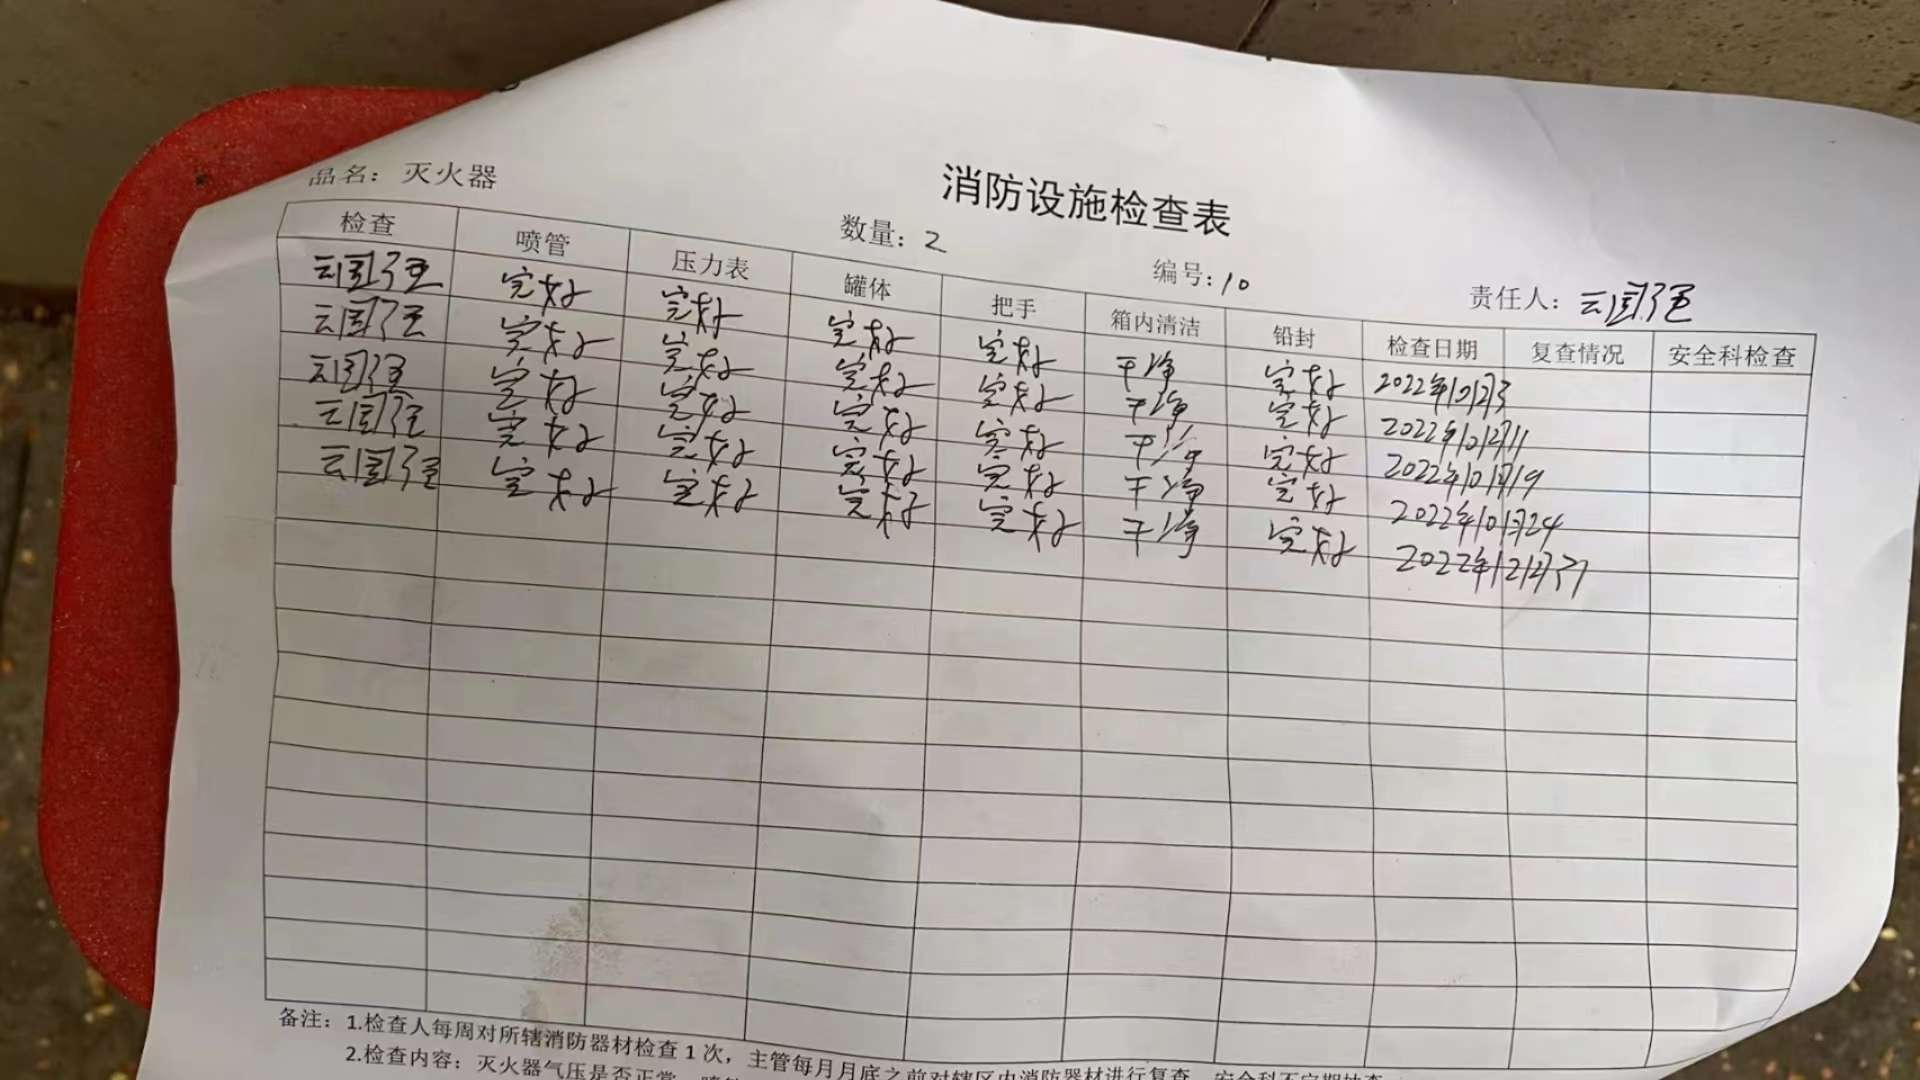 消防设施检查表
品名：灭火器 数量：2 编号：10 责任人：云国强
检查 喷管 压力表 罐体 把手 箱内清洁 铅封 检查日期 复查情况 安全科检查
云国强 完好 完好 完好 完好 干净 完好 2022年10月3
云国强 完好 完好 完好 完好 干净 完好 2022年10月11
云国强 完好 完好 完好 完好 干净 完好 2022年10月19
云国强 完好 完好 完好 完好 干净 完好 2022年10月24
云国强 完好 完好 完好 完好 干净 完好 2022年12月
备注：1.检查人每周对所辖消防器材检查1次，主管每月月底之前对辖区内消防器材进行复查，安全科不定期抽查
2.检查内容：灭火器气压是否正常